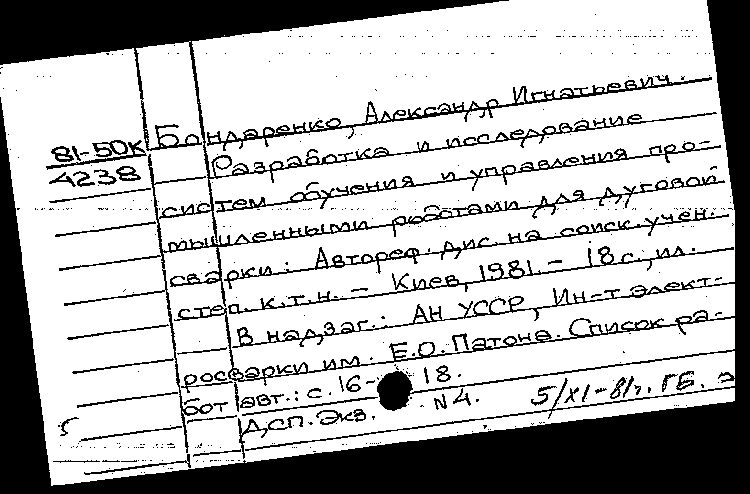 81-50к
4238
Бондаренко, Александр Игнатьевич.
Разработка и исследование
систем обучения и управления про-
мышленными роботами для дуговой
сварки: Автореф. дис. на соиск. учен.
степ. к.т.н. - Киев, 1981. - 18 с., ил.
В надзаг.: АН УССР, Ин-т элект-
росварки им. Е.О. Патона. Список ра-
бот авт.: с. 16-18.
ДСП. Экз. N4. 5/XI-81г. ГБ.